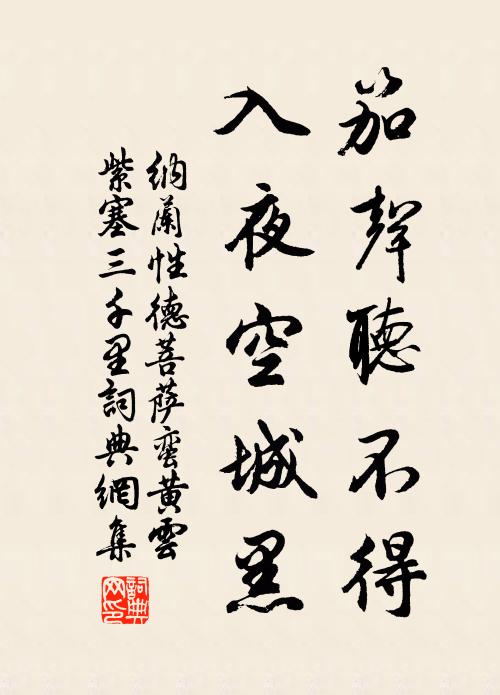 笳聲聽不得
入夜空城黑
納蘭性德菩薩蠻黃雲
紫塞三千里詞典網集
詞典
网印